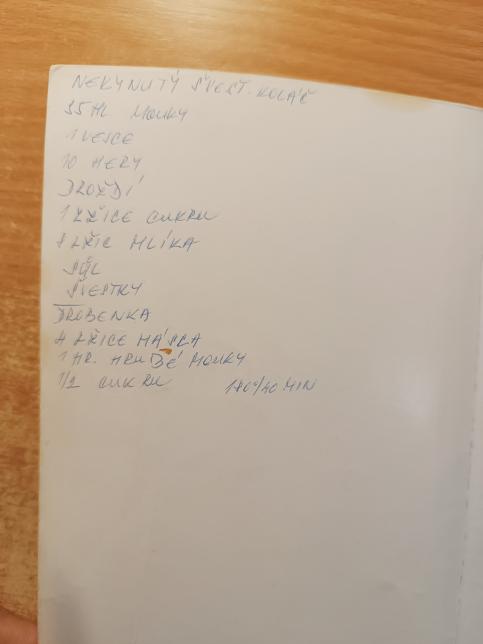 NEKYNUTÝ ŠVEST. KOLÁČ
35 HL MOUKY
1 VEJCE
10 HERY
DROŽDÍ
1 LŽÍCE CUKRU
8 LŽIC MLÍKA
SŮL
ŠVESTKY
DROBENKA
4 LŽÍCE MÁSLA
1 HR. HRUBÉ MOUKY
1/2 CUKRU 180°/40 MIN